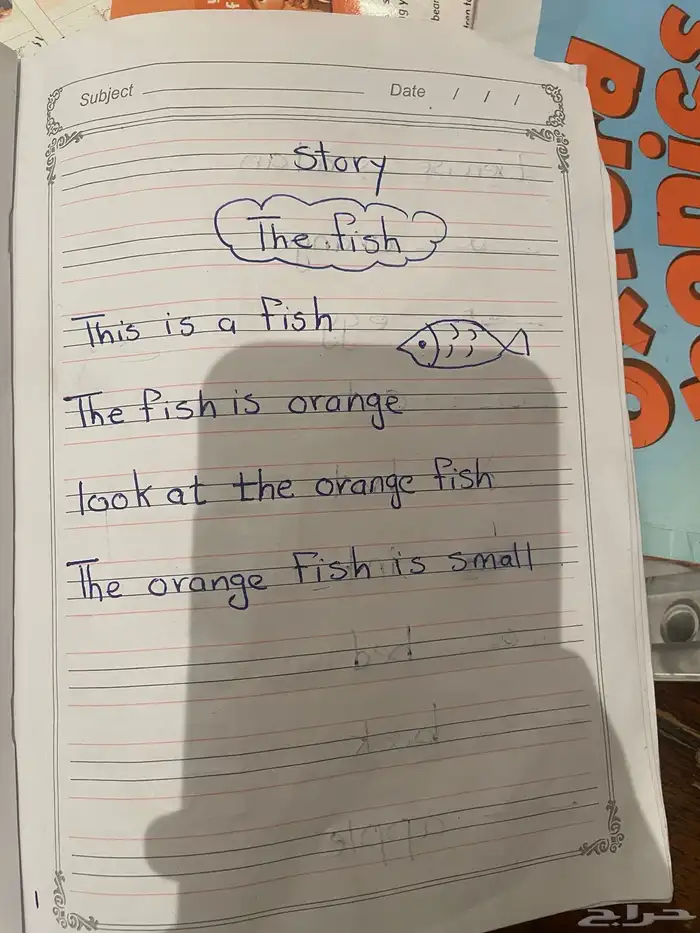 Subject
Date / / /
story
The fish
This is a fish
The fish is orange
look at the orange fish
The orange Fish is small
حراج